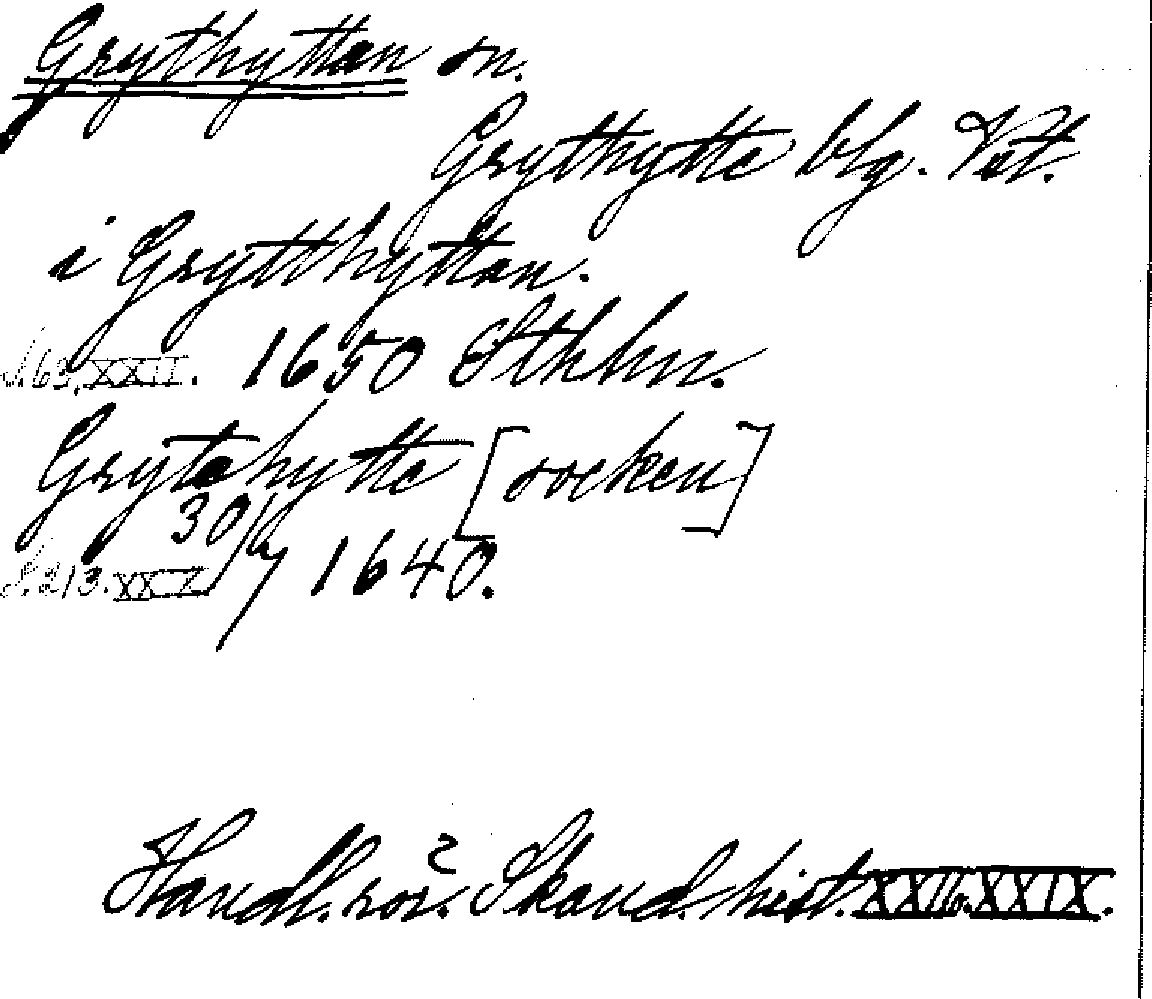 Grythyttan sn.
Grythytte blg. Vst.
i Grytthyttan.
S. 65, XXII. 1650 Sthlm.
Grytehytte [socken]
S. 213. 30/7 1640.
Handl. rör. Skand. hist. XXII o. XXIX.